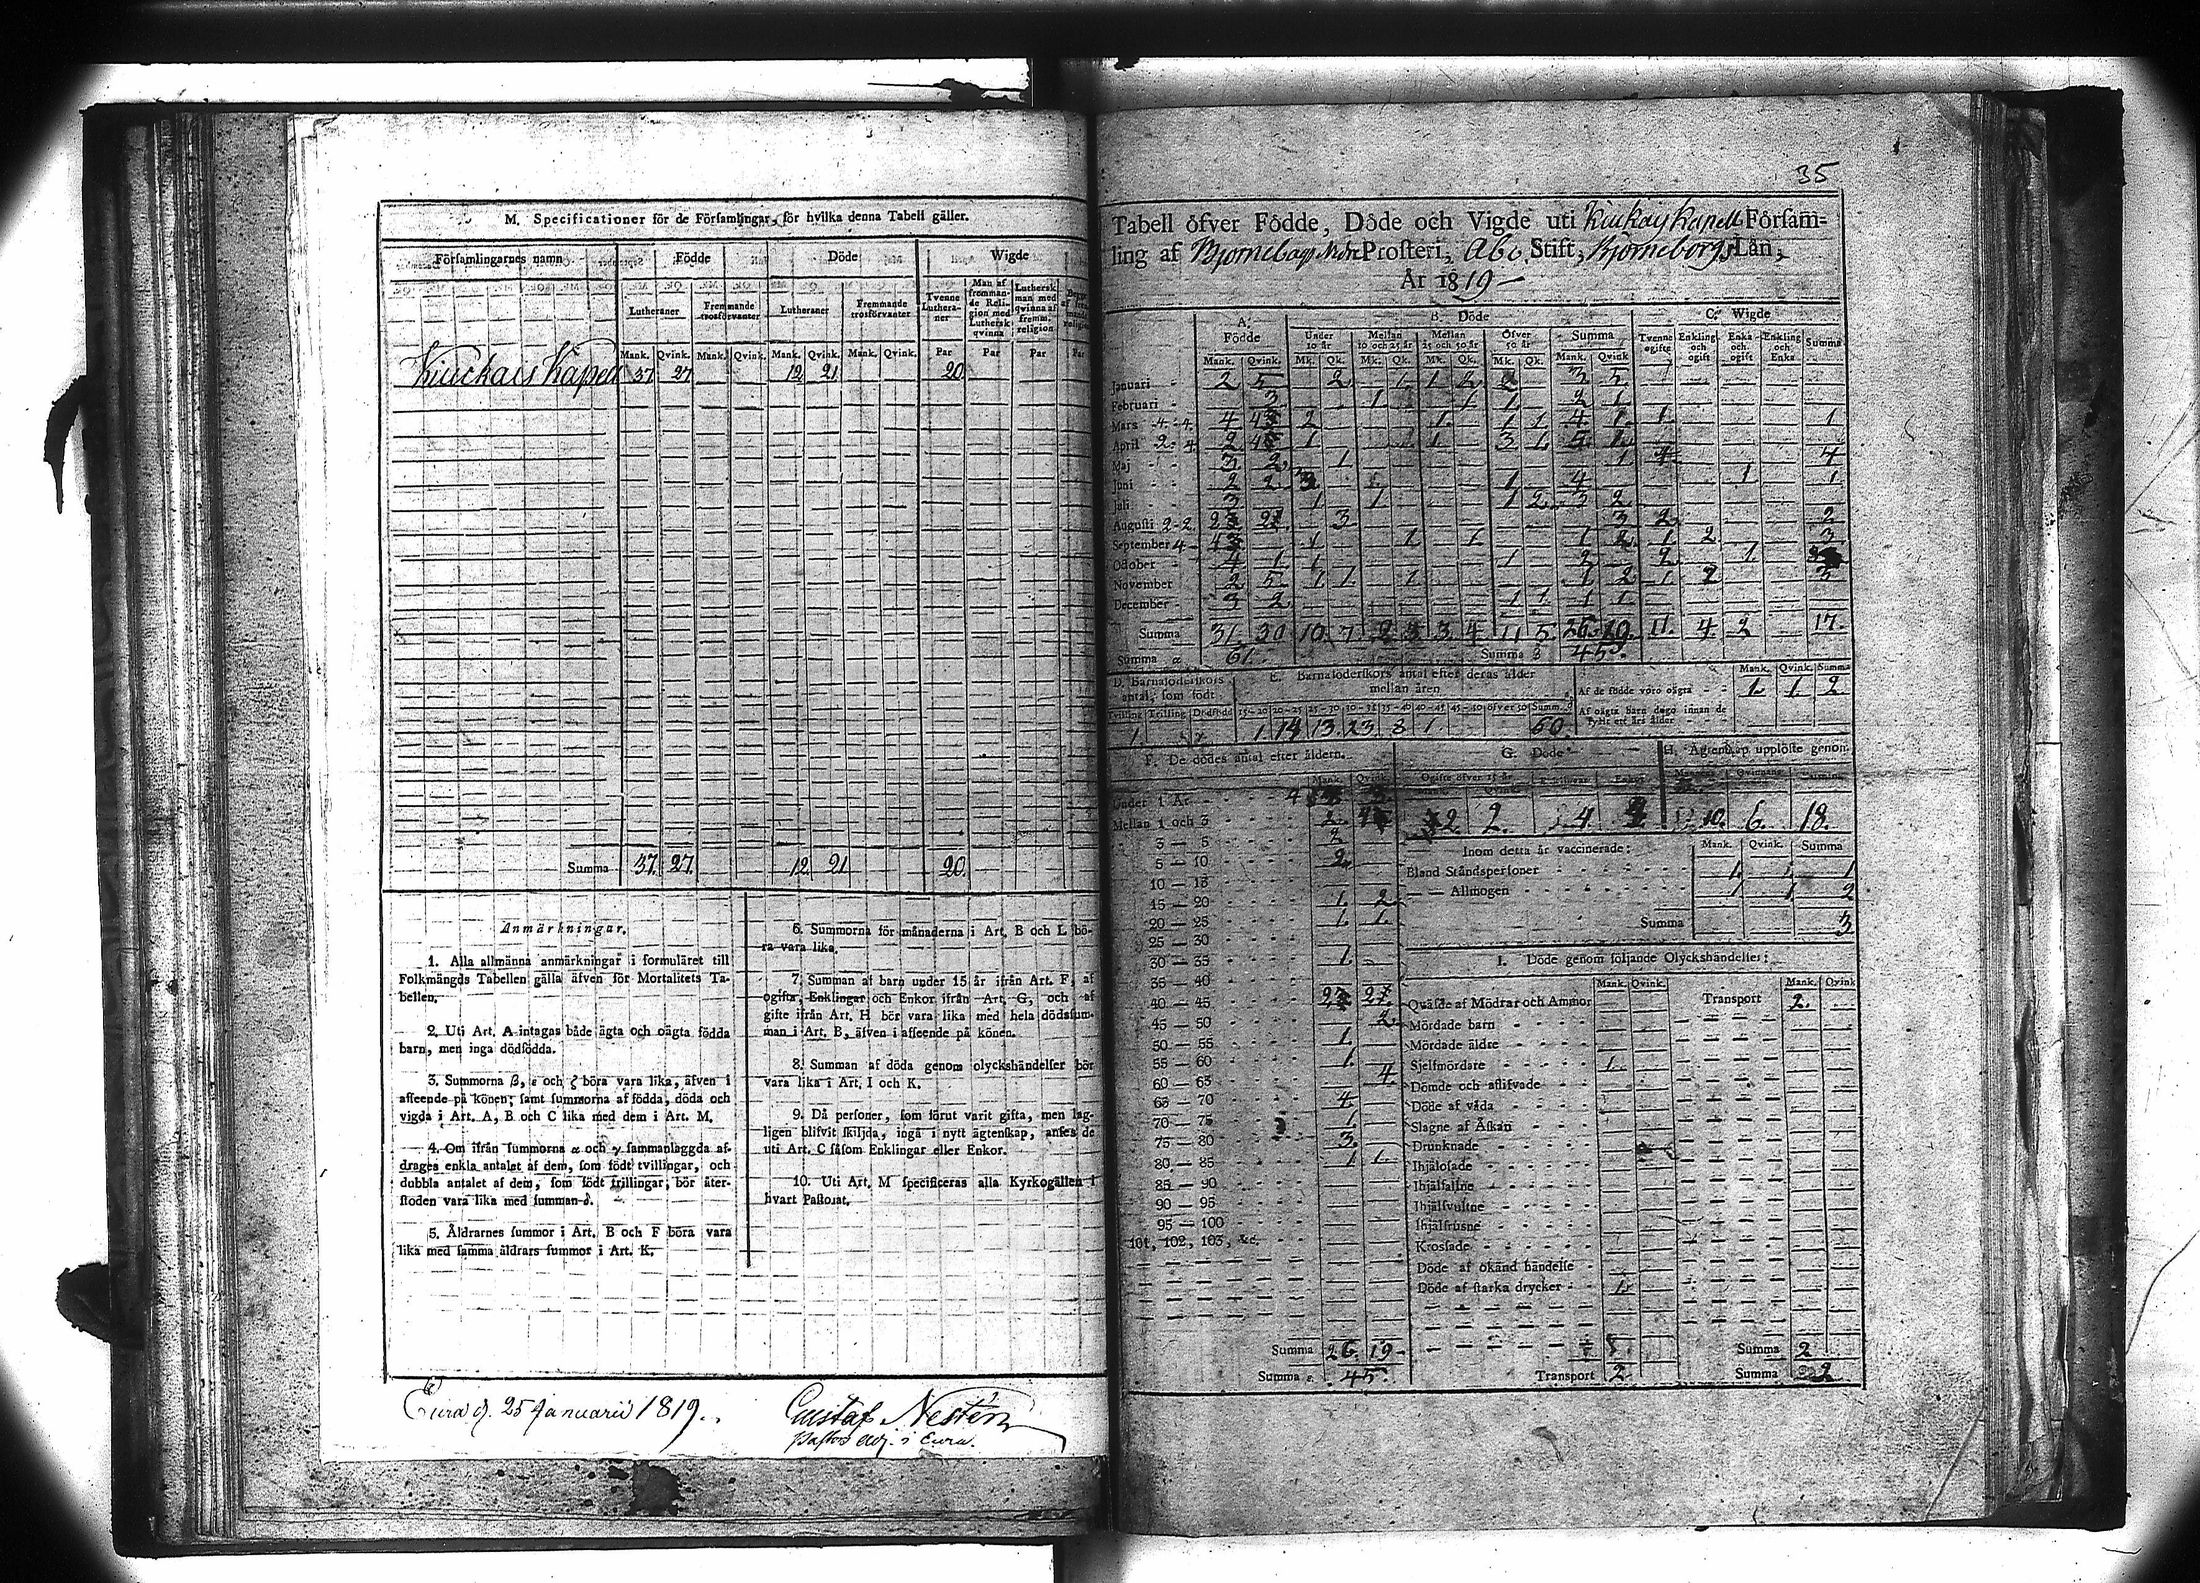 M. Specificationer för de Församlingar, för hvilka denna Tabell gäller.
Församlingarnes namn Födde Döde Wigde
Lutheraner Fremmande trosförvanter Lutheraner Fremmande trosförvanter Tvenne Lutheraner Man af frommande Religion med Luthersk qvinna Luthersk man med qvinna af fremm. religion
Mank. Qvink. Mank. Qvink. Mank. Qvink. Mank. Qvink. Par Par Par Par
Kiuckais Kapell 37 27 12 21 20
Summa 37. 27. 12 21 20.
Anmärkningar.
1. Alla allmänna anmärkningar i formuläret till
Folkmängds Tabellen gälla äfven för Mortalitets Ta-
bellen.
2. Uti Art. A intagas både ägta och oägta födda
barn, men inga dödfödda.
3. Summorna β, ε och ζ böra vara lika, äfven i
afseende på könen; samt summorna af födda, döda och
vigda i Art. A, B och C lika med dem i Art. M.
4. Om ifrån summorna α och γ sammanlaggda af-
drages enkla antalet af dem, som födt tvillingar, och
dubbla antalet af dem, som födt trillingar, bör åter-
stoden vara lika med summan δ.
5. Åldrarnes summor i Art. B och F böra vara
lika med samma åldrars summor i Art. K.
6. Summorna för månaderna i Art. B och L bö-
ra vara lika.
7. Summan af barn under 15 år ifrån Art. F, af
ogifta, Enklingar och Enkor ifrån Art. G, och af
gifte ifrån Art. H bör vara lika med hela dödssum-
man i Art. B, äfven i afseende på könen.
8. Summan af döda genom olyckshändelser bör
vara lika i Art. I och K.
9. Då personer, som förut varit gifta, men lag-
ligen blifvit skiljda, ingå i nytt ägtenskap, anses de
uti Art. C såsom Enklingar eller Enkor.
10. Uti Art. M specificeras alla Kyrkogällen i
hvart Pastorat.
Eura d. 25 Januarii 1819.
Gustaf Nestén
Pastors adj. i Eura.
35
Tabell öfver Födde, Döde och Vigde uti Kiukais Kapell Försam-
ling af Björneborgs Nedre Prosteri, Åbo Stift, Björneborgs Län,
År 1819
A. Födde B. Döde C. Wigde
Under 10 år Mellan 10 och 25 år Mellan 25 och 50 år Öfver 50 år Summa Tvenne ogifte Enkling och ogift Enka och ogift Enkling och Enka Summa
Mank. Qvink. Mk. Qk. Mk. Qk. Mk. Qk. Mk. Qk. Mank. Qvink
Januari 2 5 2 1 1 2 2 3 5
Februari 3 1 1 1 2 1
Mars 4 4 4 2 1 1 1 4 1 1 1
April 2 4 2 1 1 3 1 5 1
Maj 3 2 1 1 4 4
Juni 2 2 3 1 1 4 1 1
Juli 3 1 1 1 2 3 2
Augusti 2 2 2 3 3 2 2
September 4 1 1 1 1 2 1 2 3
October 4 1 1 1 2 2 1
November 2 5 1 1 1 1 2 1 2 3
December 3 2 1 1 1 1
Summa 31. 30 10. 7. 2 3 3. 4 11 5. 26. 19. 11. 4. 2 17.
Summa α 61. Summa β 45.
D. Barnaföderskors antal, som födt
Tvilling Trilling Dödfödd
1.
E. Barnaföderskors antal efter deras ålder mellan åren
15-20 20-25 25-30 30-35 35-40 40-45 45-50 öfver 50 Summ. δ
1. 14 13. 23. 8 1 60.
Mank. Qvink. Summa
Af de födde voro oägta 1. 1. 2
Af oägta barn dogo innan de fyllt ett års ålder
F. De dödes antal efter åldern.
Mank. Qvink.
Under 1 År 4
Mellan 1 och 3 2
3 — 5 2
5 — 10 2
10 — 15
15 — 20 1. 2
20 — 25 1. 1.
25 — 30
30 — 35 1.
35 — 40
40 — 45 2 2
45 — 50 2
50 — 55 1.
55 — 60 1.
60 — 65 4.
65 — 70 4.
70 — 75 1.
75 — 80 3.
80 — 85 1 1.
85 — 90
90 — 95
95 — 100
101, 102, 103, &c.
Summa 26. 19
Summa ε 45.
G. Döde
Ogifte öfver 15 år Enklingar Enkor
2. 2. 4
H. Ägtenskap upplöste genom
10. 6. 18.
Inom detta år vaccinerade:
Mank. Qvink. Summa
Bland Ståndspersoner 1. 1
— — Allmogen 1 1. 2
Summa 3
I. Döde genom följande Olyckshändelser:
Mank. Qvink. Mank. Qvink
Qväfde af Mödrar och Ammor Transport 2.
Mördade barn
Mördade äldre
Sjelfmördare 1.
Dömde och aflifvade
Döde af våda
Slagne af Åskan
Drunknade
Ihjälosade
Ihjälfallne
Ihjälsvultne
Ihjälfrusne
Krossade
Döde af okänd händelse
Döde af starka drycker 1.
Summa 2
Transport 2 Summa 2